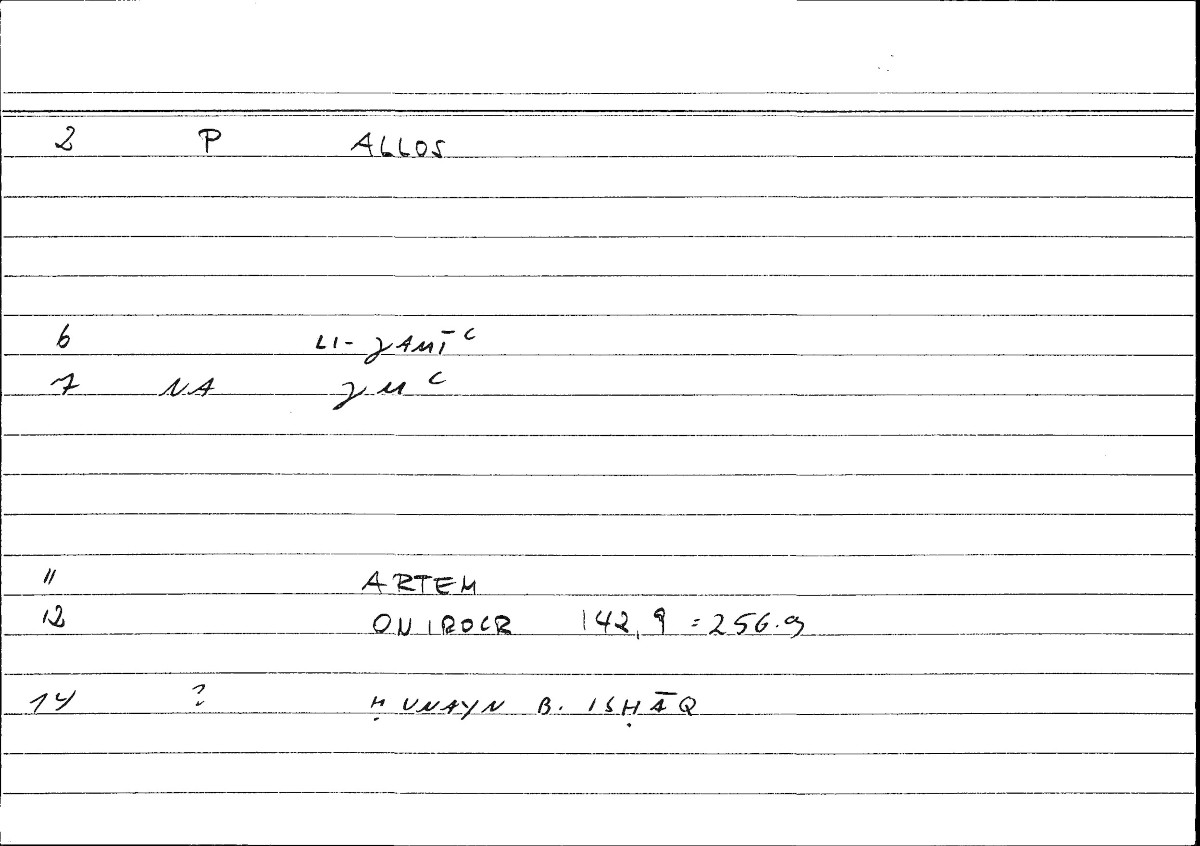 2 P ALLOS
6 LI-ǦAMĪʿ
7 NA ǦMʿ
11 ARTEM
12 ONIROCR 142,9 = 256.9
14 ? ḤUNAYN B. ISḤĀQ